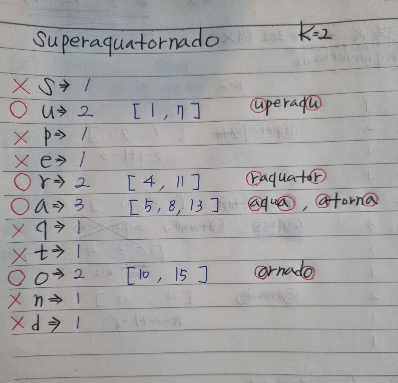 superaquatornado K=2
X S → 1
O u → 2 [1, 7] uperaqu
X p → 1
X e → 1
O r → 2 [4, 11] raquator
O a → 3 [5, 8, 13] aqua, atorna
X q → 1
X t → 1
O o → 2 [10, 15] ornado
X n → 1
X d → 1